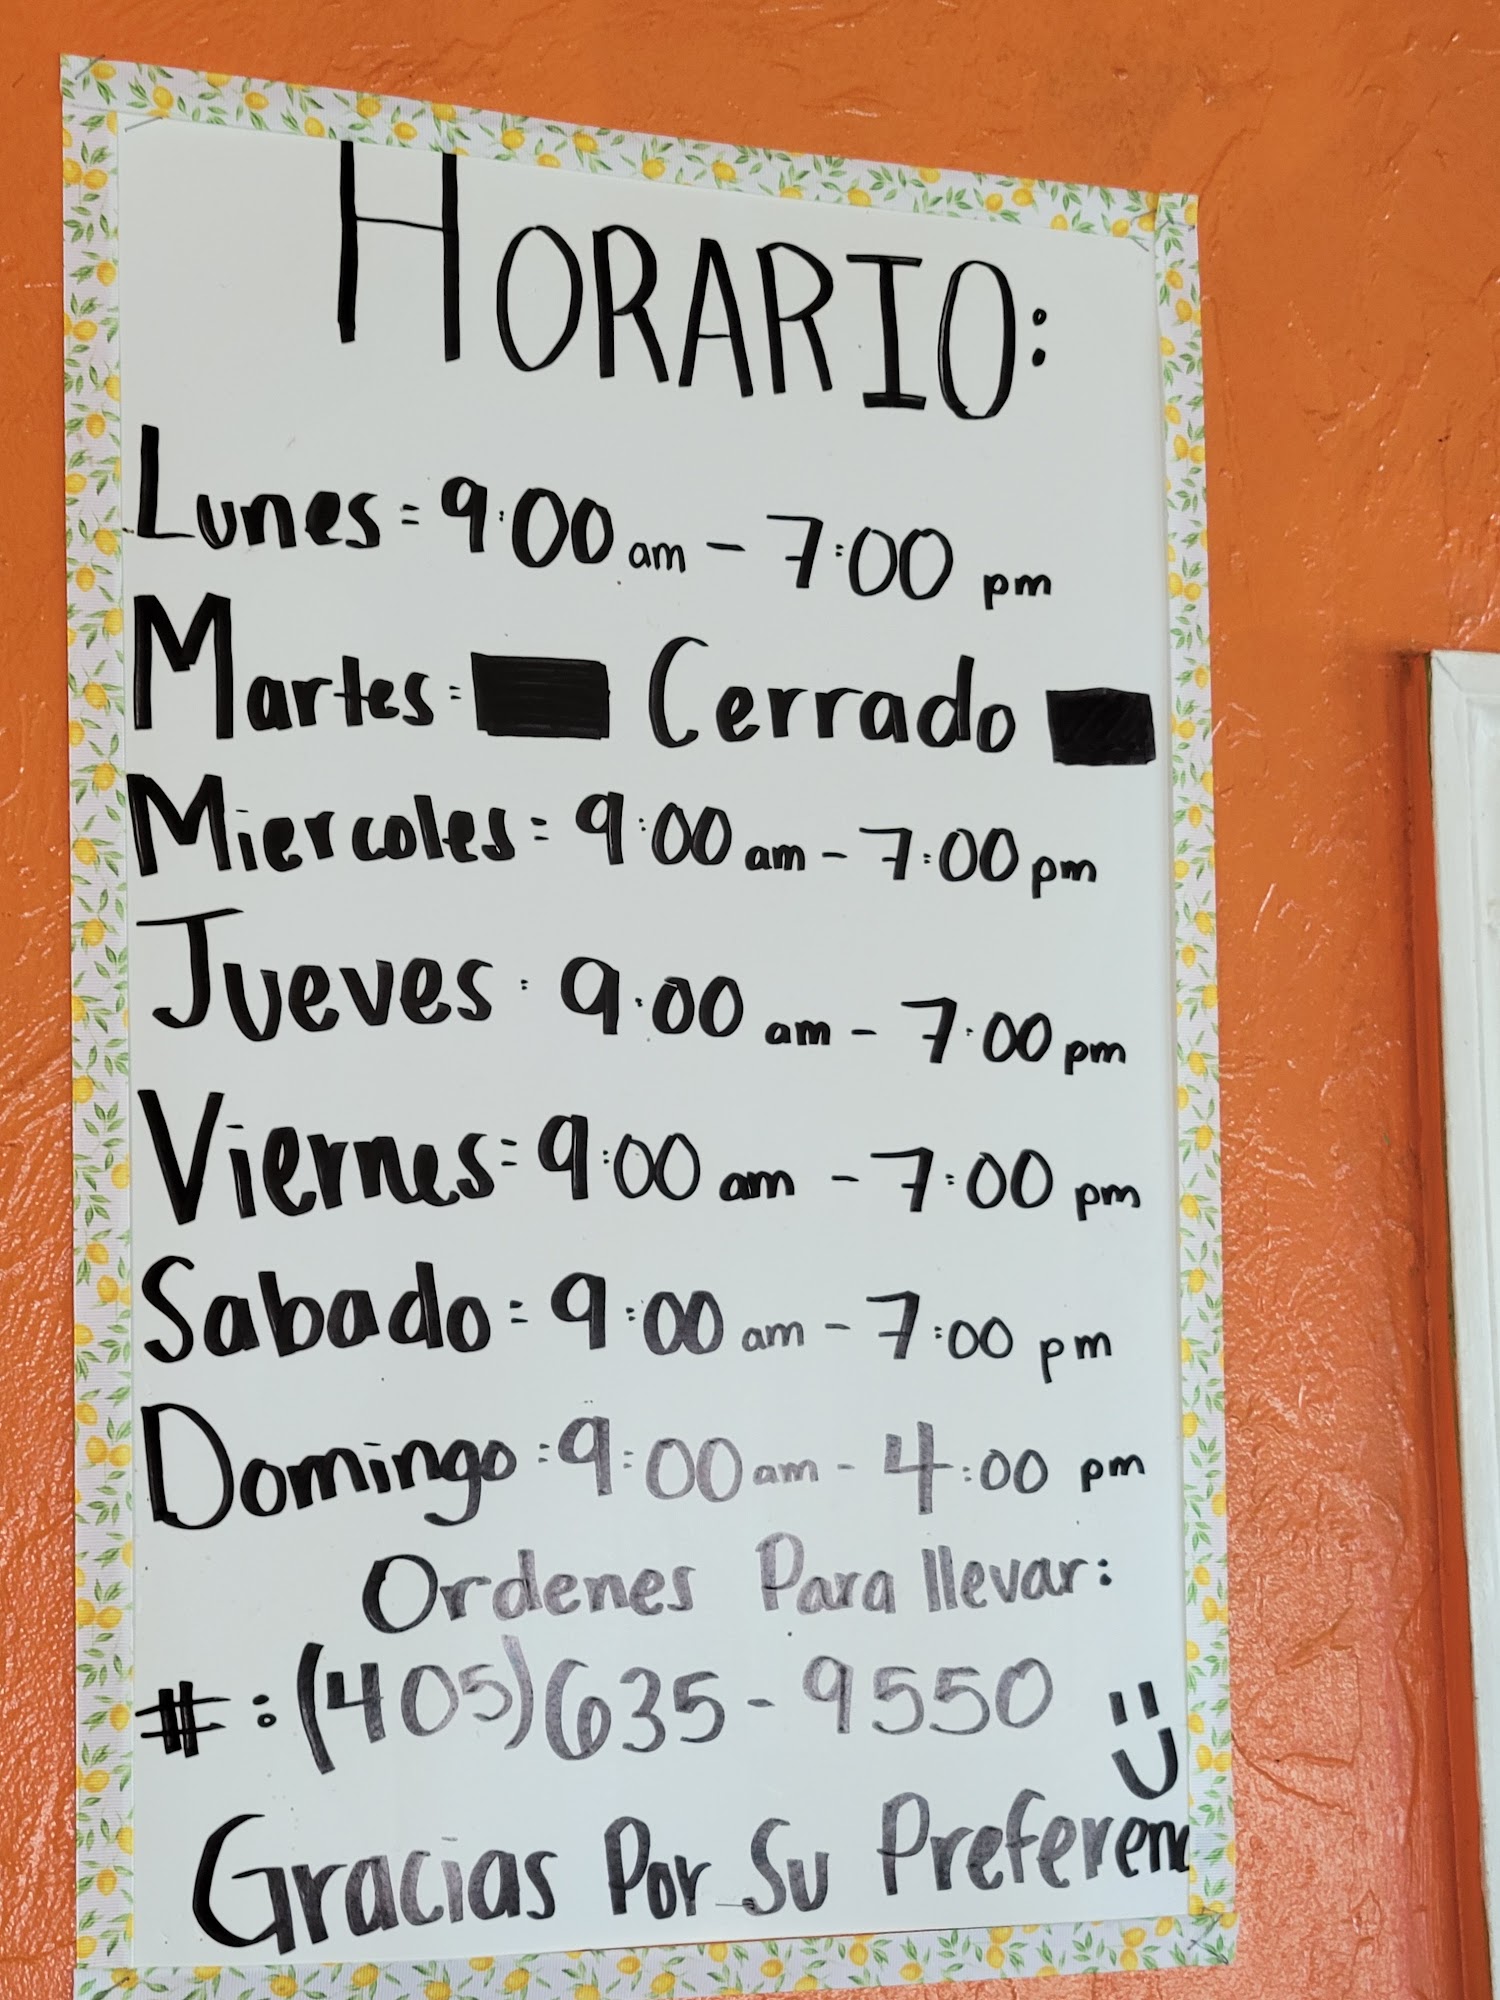 HORARIO:
Lunes: 9:00 am - 7:00 pm
Martes: Cerrado
Miercoles: 9:00 am - 7:00 pm
Jueves: 9:00 am - 7:00 pm
Viernes: 9:00 am - 7:00 pm
Sabado: 9:00 am - 7:00 pm
Domingo: 9:00 am - 4:00 pm
Ordenes Para llevar:
#: (405)635-9550
Gracias Por Su Preferenc